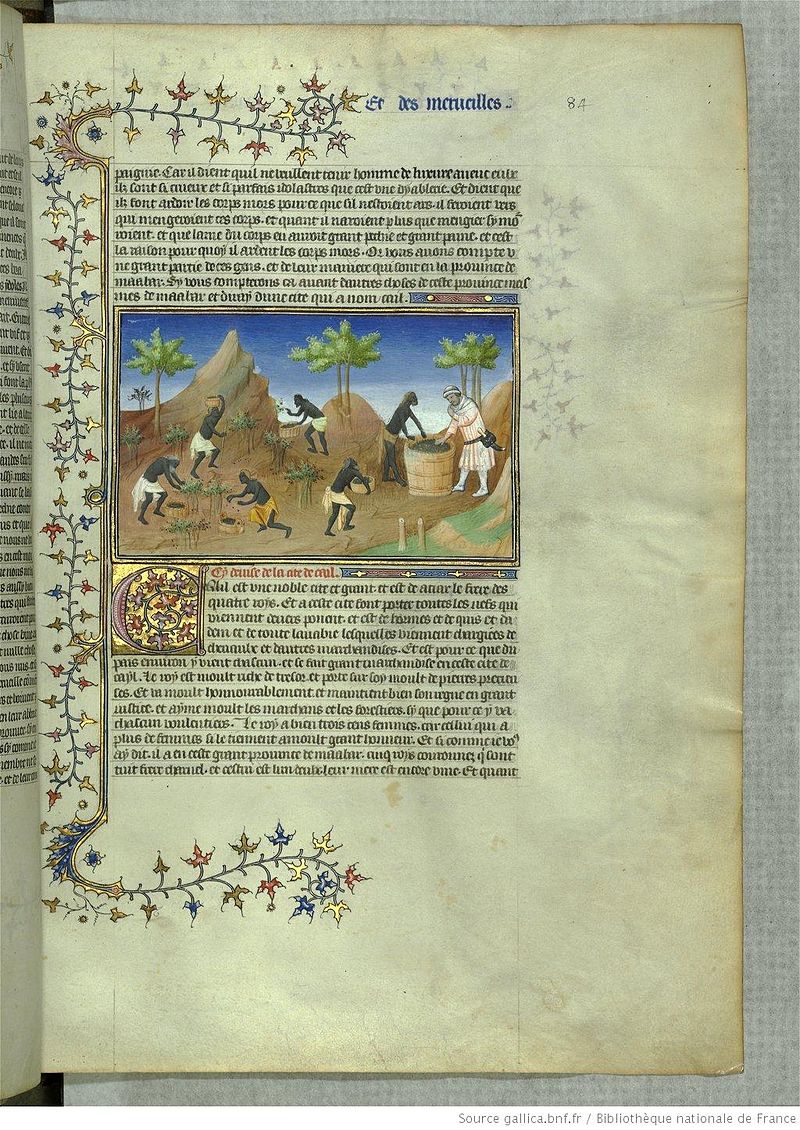 Et des merueilles
84
paignie. Car il dient quil ne veulent tenir homme de luxure auent eulx
ilz sont si crueux et si parfais ydolastres que cest vne dyablerie. Et dient que
ilz font ardoir les corps mors pour ce que sil nestoient ars. il feroient vers
qui mengeroient ces corps. et quant il naroient plus que mengier sy mor
roient. et que lame du corps en auroit grant pechie et grant paine. et cest
la raison pour quoy il ardent les corps mors. Or vous auons compte v
ne grant partie de ces gens. et de leur maniere qui sont en la prouince de
maabar. Sy vous compterons cy auant dautres choses de ceste prouince mas
mes de maabar et diray dune cite qui a nom cail.
Cy deuise de la cite de cayl.
Cail est vne noble cite et grant. et est de atiar le frere des
quatre roys. Et a ceste cite font porter toutes les nefs qui
viennent deuers ponent. et est de hormes et de quis et da
dem et de toute larabie lesquelles viennent chargiees de
cheuaulx et dautres marchandises. Et est pour ce que du
pais enuiron y vient chascun. et se fait grant marchandise en ceste cite de
cayl. Le roy est moult riche de tresor. et porte sur soy moult de pierres precieu
ses. Et va moult honnourablement. et maintient bien son regne en grant
iustice. et ayme moult les marchans et les forestiers. sy que pour ce y va
chascun voulentiers. Le roy a bien trois cens femmes. car cellui qui a
plus de femmes si le tiennent a moult grant honneur. Et si comme ie vous
ay dit. il a en ceste grant prouince de maabar. cinq roys couronnez qui sont
tuit frere charnel. et cestui est lun deulx. leur mere est encore viue. Et quant
Source gallica.bnf.fr / Bibliothèque nationale de France